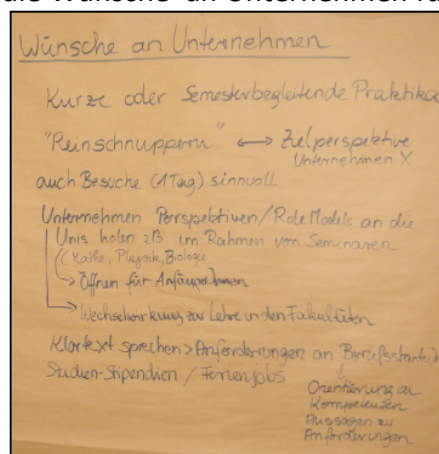 die Wünsche an Unternehmen
Wünsche an Unternehmen
Kurze oder Semesterbegleitende Praktika
"Reinschnuppern" <-> Zielperspektive
Unternehmen X
auch Besuche (1 Tag) sinnvoll
Unternehmen Perspektiven / Role Models an die
Unis holen zB. im Rahmen von Seminaren
(Mathe, Physik, Biologie
-> Öffnen für AnfängerInnen
-> Wechselwirkung zur Lehre in den Fakultäten
Klartext sprechen > Anforderungen an
Studien-Stipendien / Ferienjobs
Orientierung an
Kompetenzen
Aussagen zu
Anforderungen